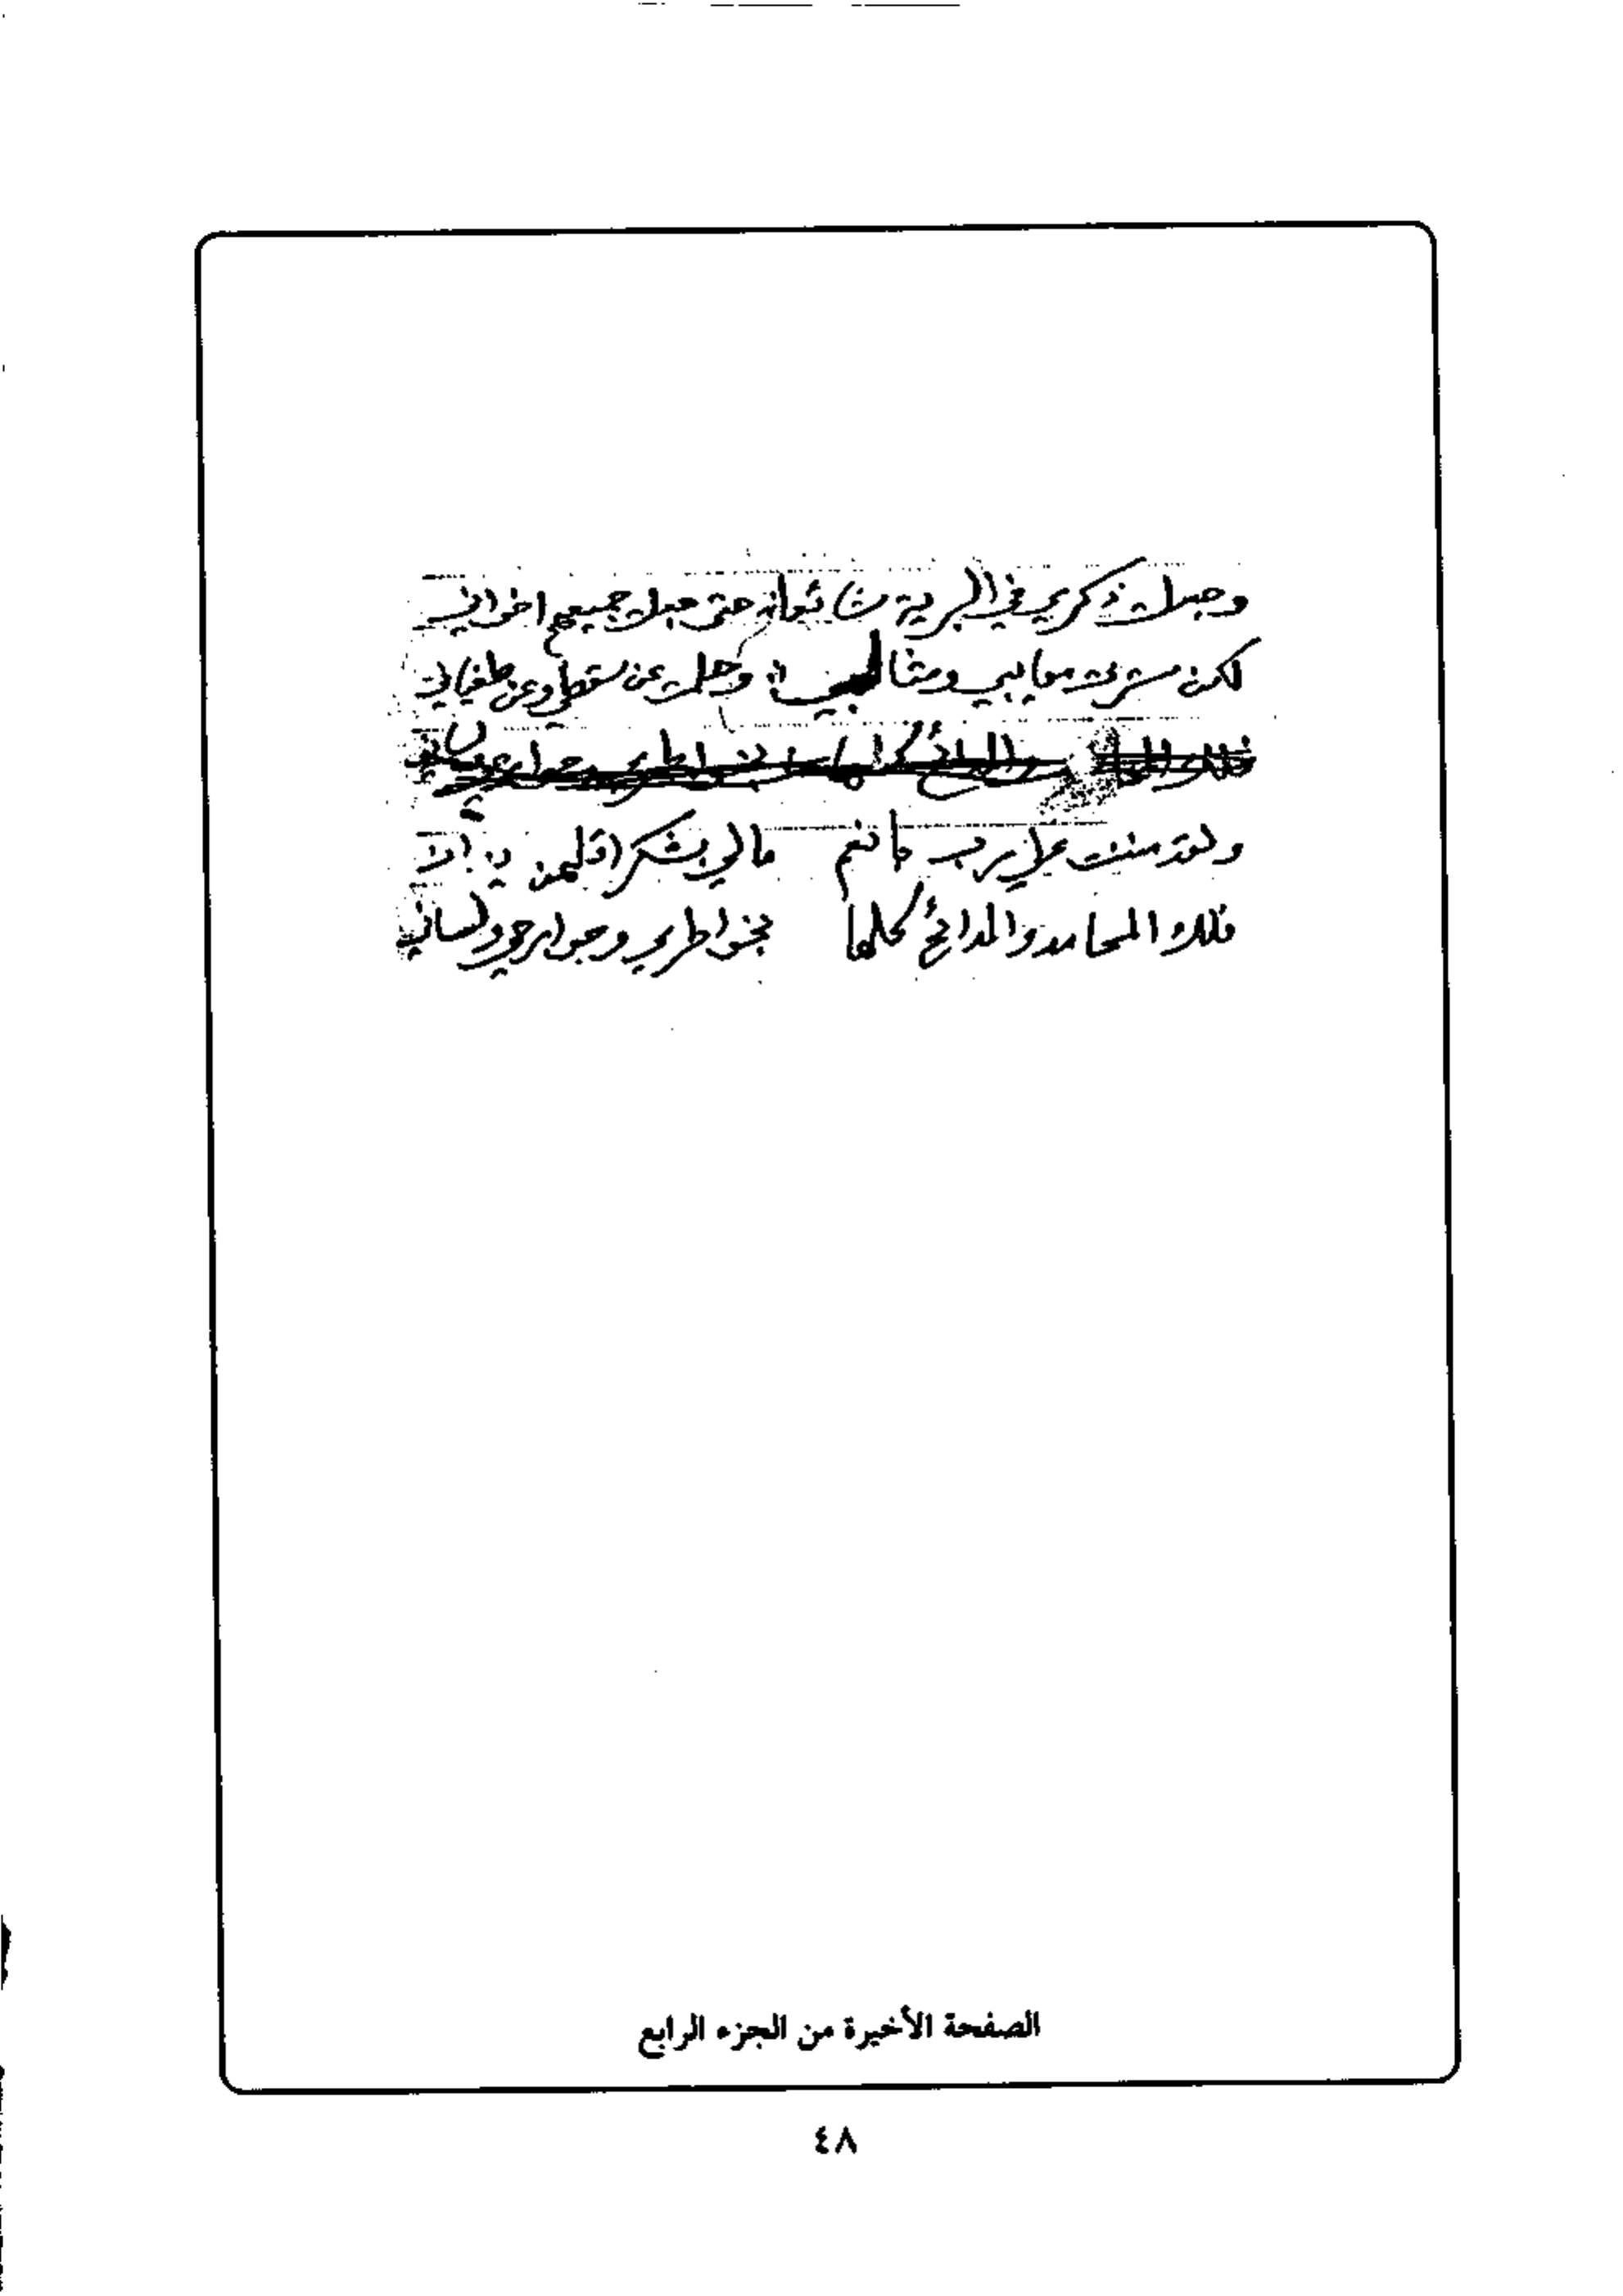 وجعلت ذكري في البرية شائعا حتى جعلت جميعهم اخواني
لكن سترت معايبي ومثالبي وحلمت عن سقطي وعن طغياني
والمدائح كلها
ولقد مننت علي رب بانعم مالي بشكر اقلهن يدان
فلك المحامد والمدائح كلها بخواطري وجوارحي ولساني
الصفحة الأخيرة من الجزء الرابع
٤٨